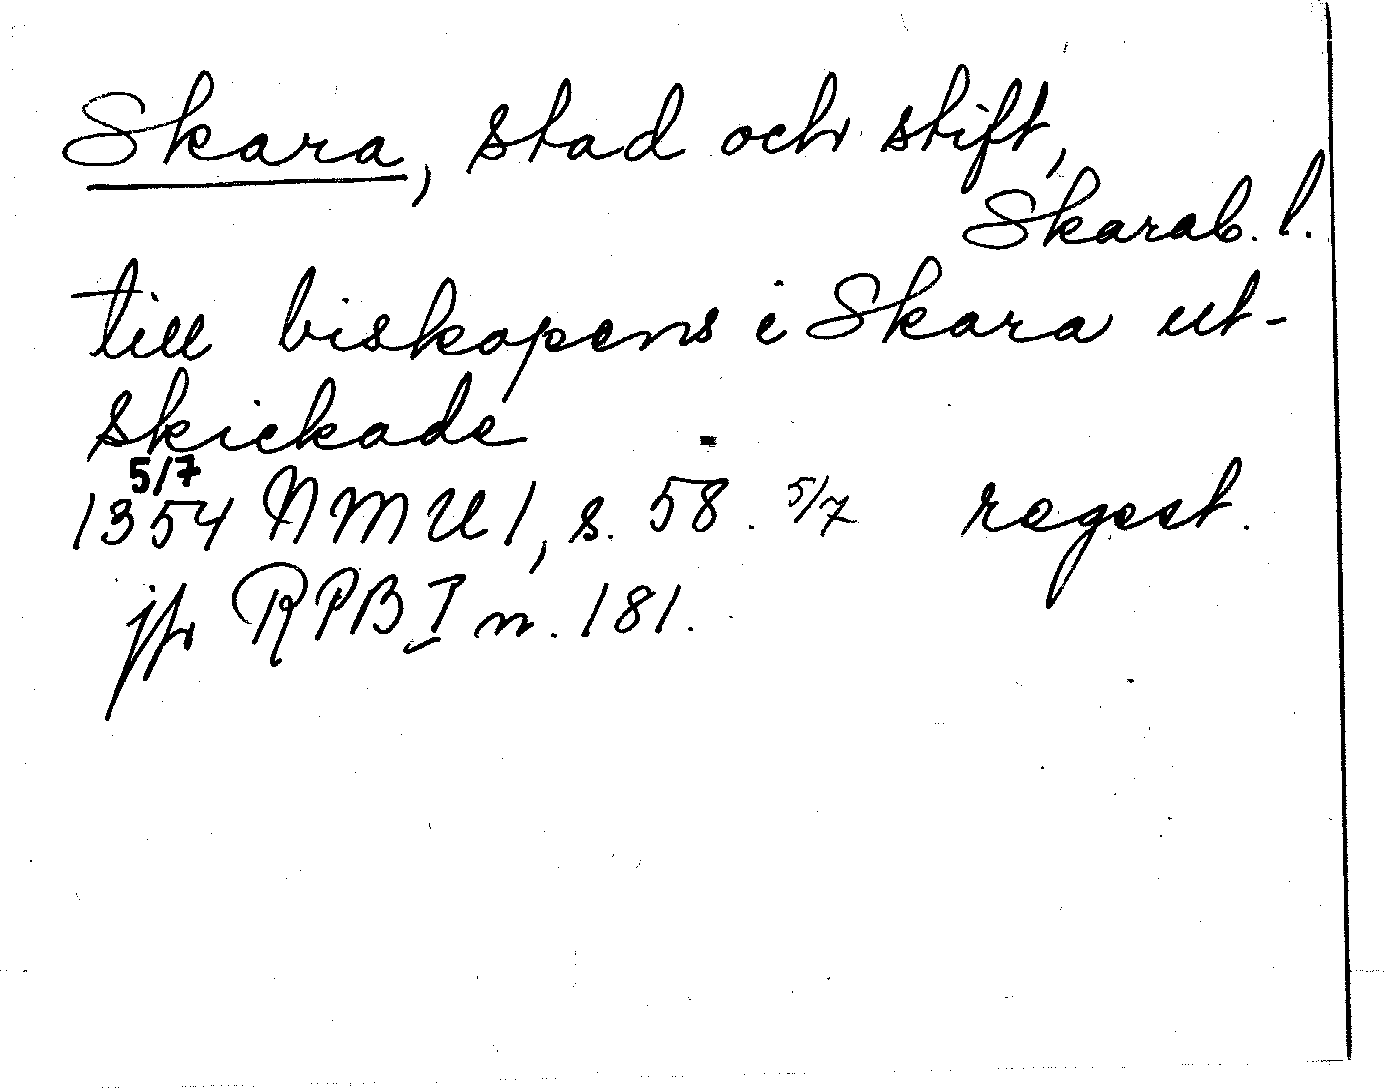 Skara, stad och stift,
Skarab. l.
till biskopens i Skara ut-
skickade
5/7
1354 NMU 1, s. 58. 5/7 regest.
jfr RPB I n. 181.